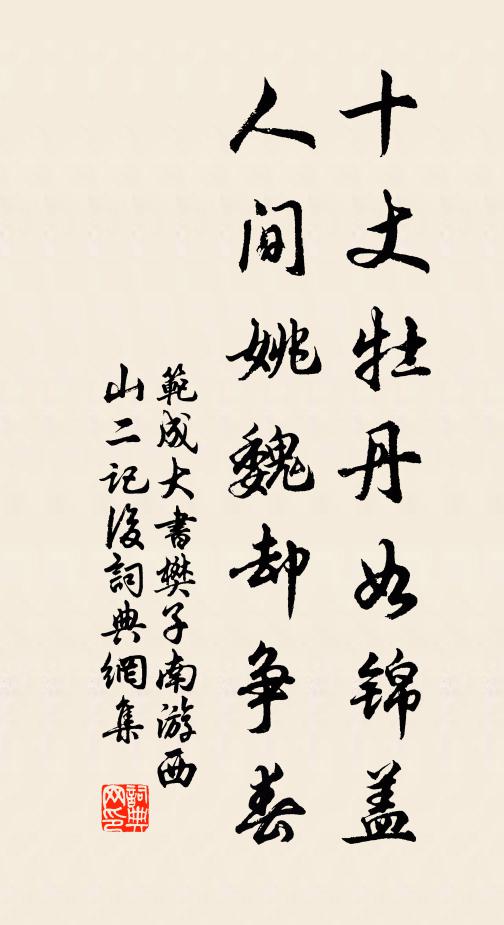 十丈牡丹如锦盖
人间姚魏却争春
範成大書樊子南游西
山二记後詞典網集
詞典网印